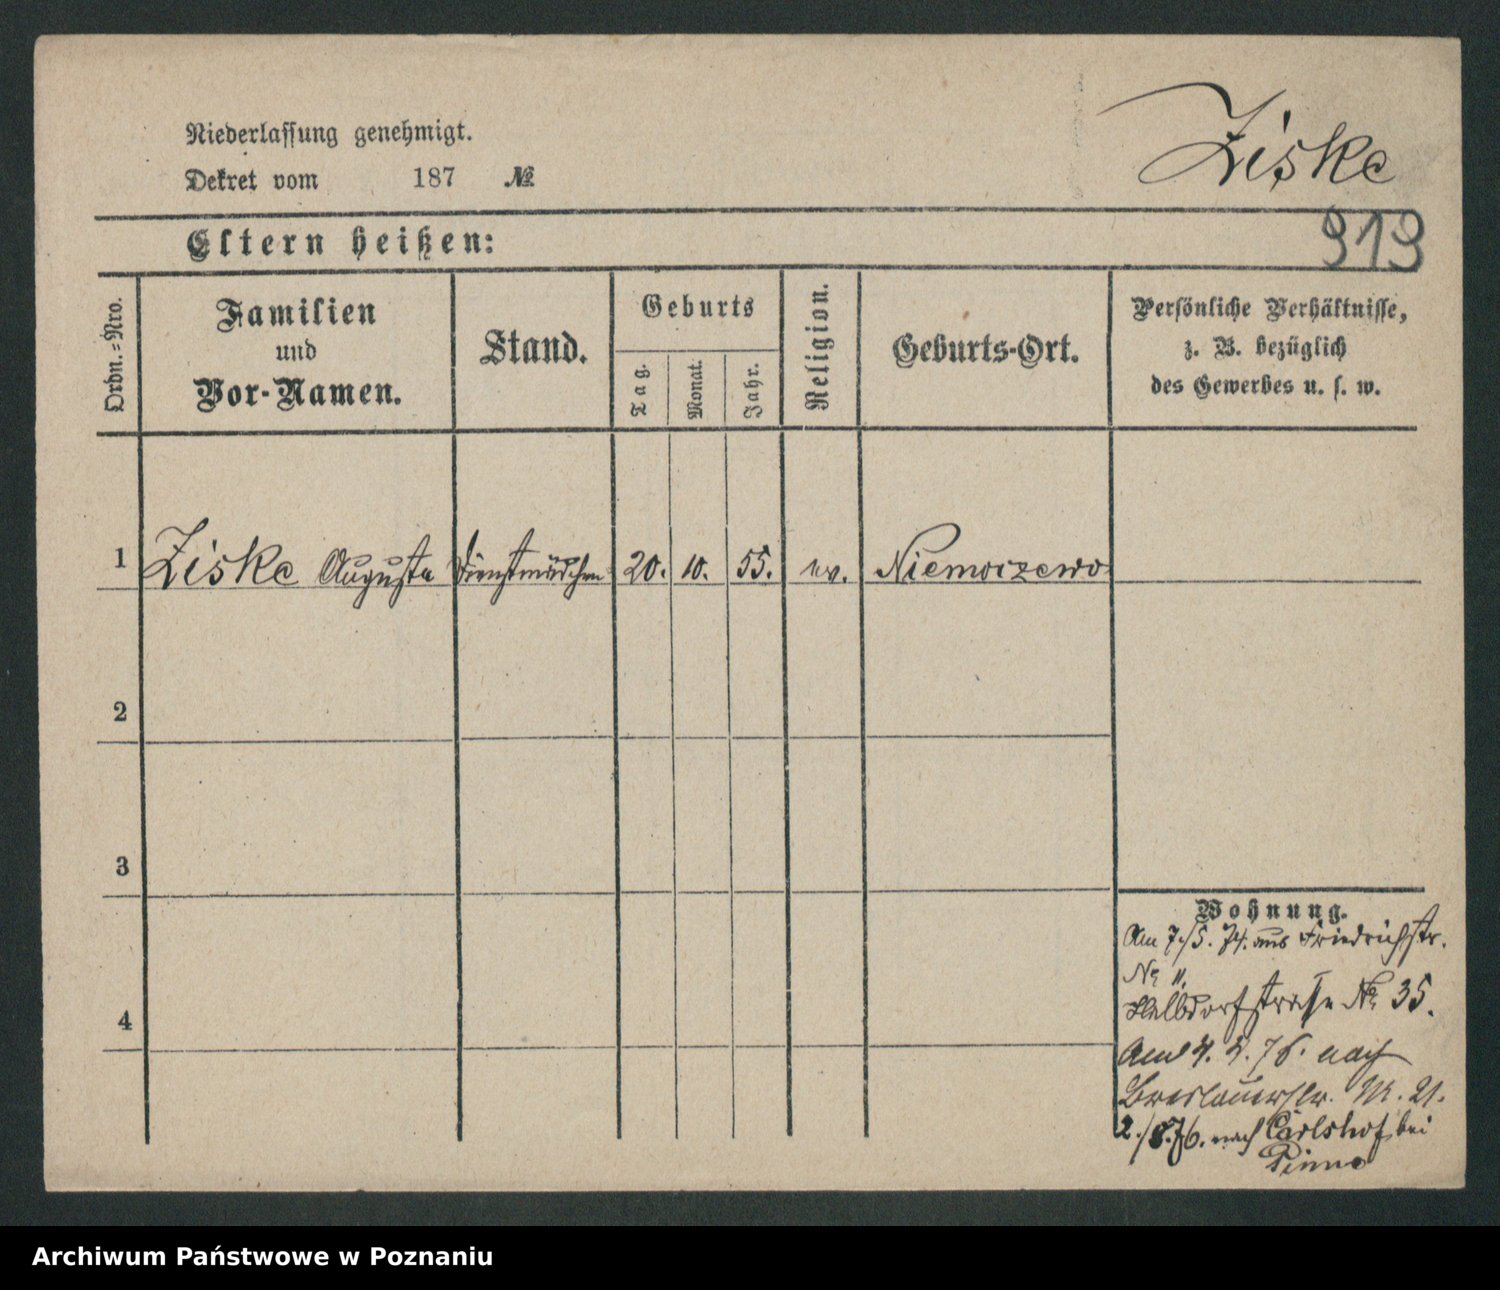 Niederlassung genehmigt.
Dekret vom 187 №
Ziske
919
Eltern heißen:
Ordn.-Nro.
Familien
und
Vor-Namen.
Stand.
Geburts
Tag.
Monat.
Jahr.
Religion.
Geburts-Ort.
Persönliche Verhältnisse,
z. B. bezüglich
des Gewerbes u. s. w.
1 Ziske Augusta Dienstmädchen 20. 10. 55. ev. Niemoizewo
2
3
4
Wohnung.
Am 7./5. 74. aus Friedrichstr.
№ 11.
Halbdorfstrasse № 35.
Am 4. 4. 76. nach
Breslauerstr. № 21.
2./8.76. nach Carlshof bei
Pinne
Archiwum Państwowe w Poznaniu